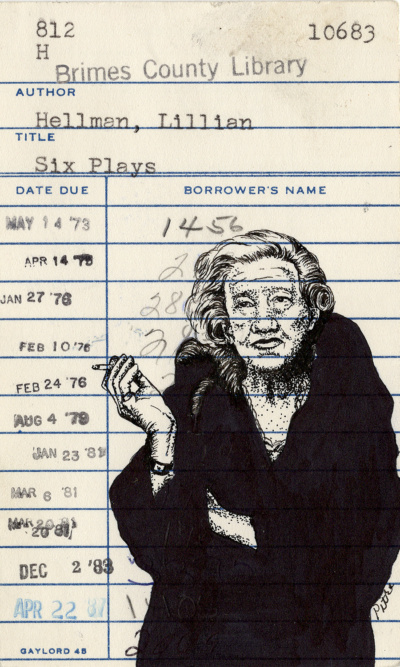 812 10683
H
Brimes County Library
AUTHOR
Hellman, Lillian
TITLE
Six Plays
DATE DUE BORROWER'S NAME
MAY 14 '73 1456
APR 14
JAN 27 '76
FEB 10 '76
FEB 24 '76
AUG 4 '79
JAN 23 '81
MAR 6 '81
MAR 20 81
DEC 2 '83
APR 22 87
GAYLORD 48